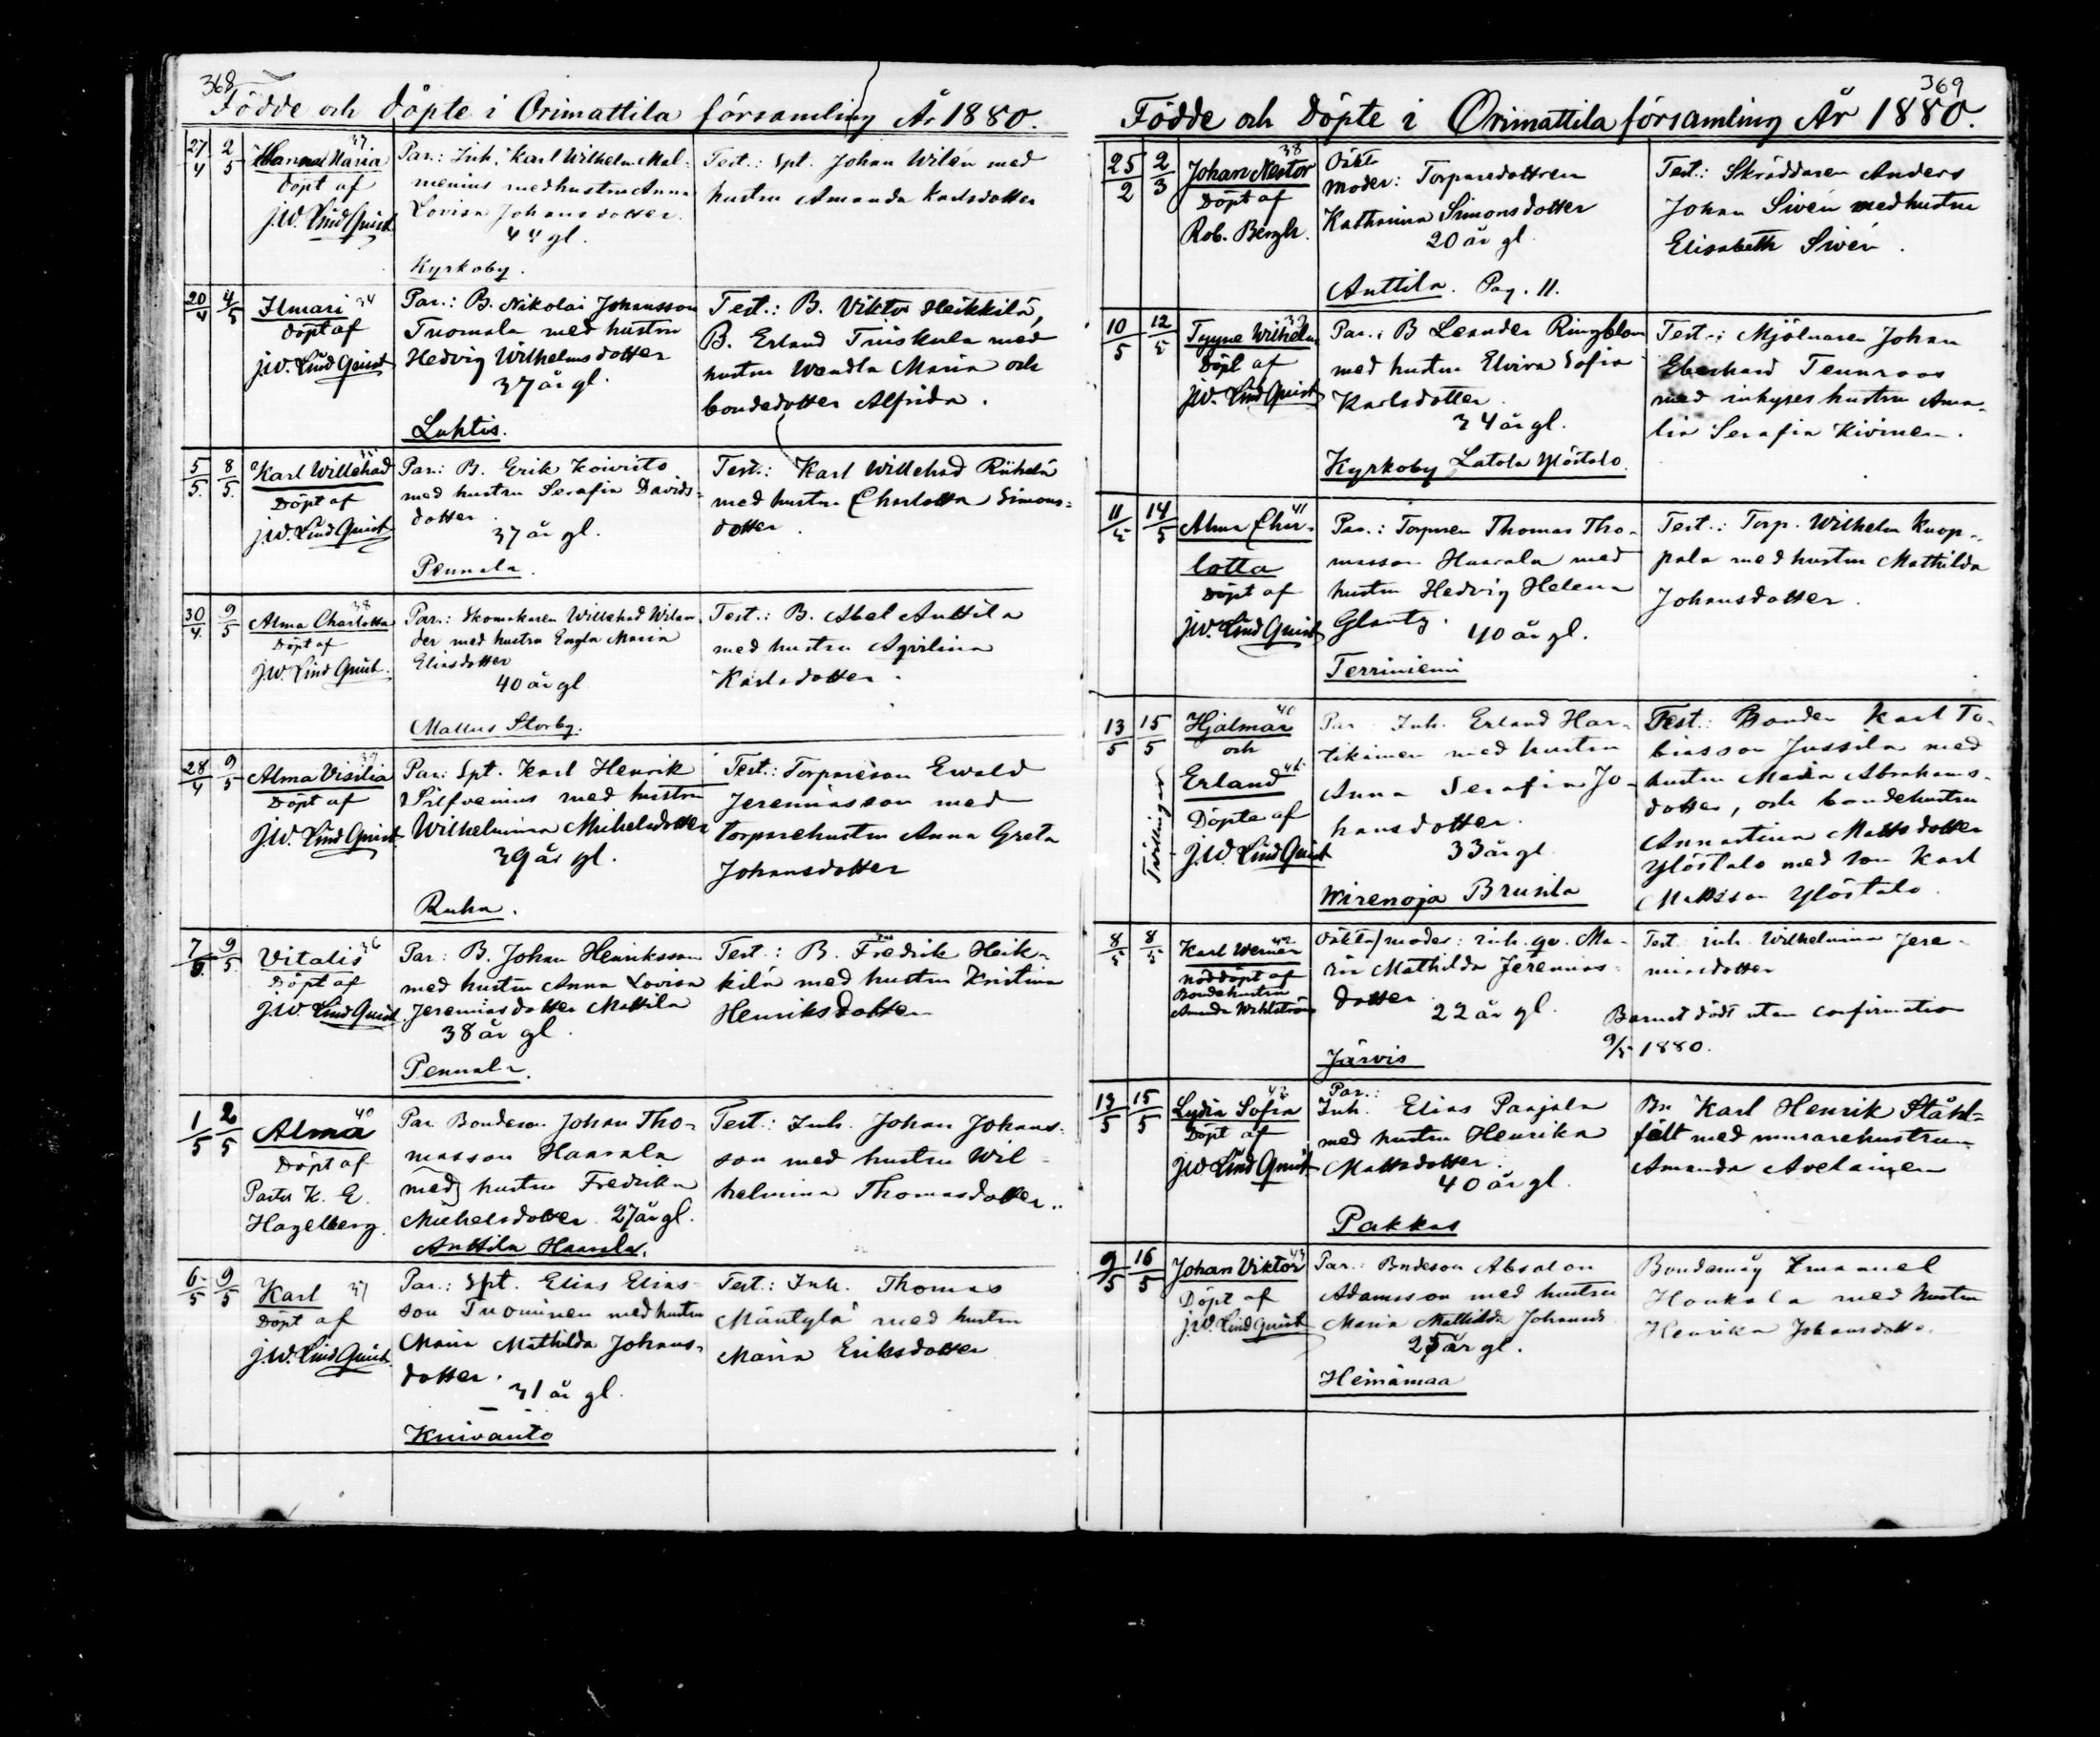 368
Födde och döpte i Orimattila församling År 1880.
27/4 2/5 Hanna Maria 37
döpt af
J.W. LindQuist
Par.: Inh. Karl Wilhelm Mal-
menius med hustru Anna
Lovisa Johansdotter.
gl.
Kyrkoby.
Test.: Spt. Johan Wilén med
hustru Amanda Karlsdotter
20/4 4/5 Ilmari 34
döpt af
J.W. LindQuist
Par.: B. Nikolai Johansson
Tuomala med hustru
Hedvig Wilhelmsdotter
37 år gl.
Luhtis.
Test.: B. Viktor Heikkilä,
B. Erland Tuiskula med
hustru Wendla Maria och
bondedotter Alfrida.
5/5. 8/5. Karl Willehad
Döpt af
J.W. LindQuist
Par.: B. Erik Koivisto
med hustru Serafia Davids-
dotter.
37 år gl.
Pennala.
Test.: Karl Willehad Riihelä
med hustru Charlotta Simons-
dotter.
30/4. 9/5 Alma Charlotta 38
Döpt af
J.W. LindQuist.
Par.: Skomakaren Willehad Wilan-
der med hustru Engla Maria
Eliasdotter
40 år gl
Mallus Storby.
Test.: B. Abel Anttila
med hustru Aqvilina
Karlsdotter.
28/4 9/5 Alma Visilia 39
Döpt af
J.W. LindQuist
Par.: Spt. Karl Henrik
Silfvenius med hustru
Wilhelmina Michelsdotter
39 år gl.
Ruha.
Test.: Torpareson Ewald
Jeremiasson med
torparehustru Anna Greta
Johansdotter
7/5. 9/5 Vitalis 36
Döpt af
J.W. LindQuist
Par: B. Johan Henriksson
med hustru Anna Lovisa
Jeremiasdotter Mattila
38 år gl.
Pennala.
Test.: B. Fredrik Heik-
kilä med hustru Kristina
Henriksdotter
1/5 2/5 Alma 40
Döpt af
Pastor K. E.
Hagelberg.
Par Bondeson Johan Tho-
masson Haavala
med hustru Fredrika
Michelsdotter 27 år gl.
Anttila Haavala.
Test.: Inh. Johan Johans-
son med hustru Wil-
helmina Thomasdotter..
6/5 9/5 Karl 37
Döpt af
J.W. LindQuist.
Par.: Spt. Elias Elias-
son Tuominen med hustru
Maria Mathilda Johans-
dotter.
31 år gl.
Kuivanto
Test.: Inh. Thomas
Mäntylä med hustru
Maria Eriksdotter
369
Födde och Döpte i Orimattila församling År 1880.
25/2 2/3 Johan Nestor 38
Döpt af
Rob. Bergh.
Oäkt
Moder: Torparedottren
Katharina Simonsdotter
20 år gl.
Anttila. Pag. 11.
Test.: Skräddaren Anders
Johan Sivén med hustru
Elisabeth Sivén.
10/5 12/5 Tyyne Wilhelm
Döpt af
J.W. LindQuist
Par.: B Leander Ringblom
med hustru Elvira Sofia
Karlsdotter.
34 år gl.
Kyrkoby Latola Ylöstalo.
Test.: Mjölnaren Johan
Eberhard Tennroos
med inhyses hustru Ama-
lia Serafia Kivinen.
11/5 14/5 Alma Char- 41
lotta
Döpt af
J.W. LindQuist
Par.: Torparen Thomas Tho-
masson Haavala med
hustru Hedvig Helena
Glantz.
40 år gl.
Terriniemi
Test.: Torp. Wilhelm Knop-
pala med hustru Mathilda
Johansdotter.
13/5 15/5 Tvillingar Hjalmar 40
och
Erland 41
Döpte af
J.W. LindQuist
Par. Inh. Erland Har-
tikainen med hustru
Anna Serafia Jo-
hansdotter.
33 år gl
Wirenoja Brusila
Test.: Bonden Karl To-
biasson Jussila med
hustru Maria Abrahams-
dotter, och bondehustru
Annastina Mattsdotter
Ylöstalo med son Karl
Mattsson Ylöstalo.
8/5 8/5 Karl Werner 42
nöddöpt af
Bondehustru
Amanda Wahlström
Oäkta/moder: inh. qv. Ma-
ria Mathilda Jeremias-
dotter.
22 år gl.
Järvis
Test. inh. Wilhelmina Jere-
miasdotter
Barnet dödt utan confirmation
9/5 1880.
13/5 15/5 Lydia Sofia 42
Döpt af
J.W LindQuist
Par.:
Inh. Elias Paajala
med hustru Henrika
Mattsdotter.
40 år gl.
Pakkas
Bn Karl Henrik Ståhl-
felt med murarehustrun
Amanda Avelainen
9/5 16/5 Johan Viktor 43
Döpt af
J.W. LindQuist
Par.: Bndeson Absalon
Adamsson med hustru
Maria Mathilda Johansd.
25 år gl.
Heinämaa
Bondemåg Emanuel
Honkala med hustru
Henrika Johansdotter.